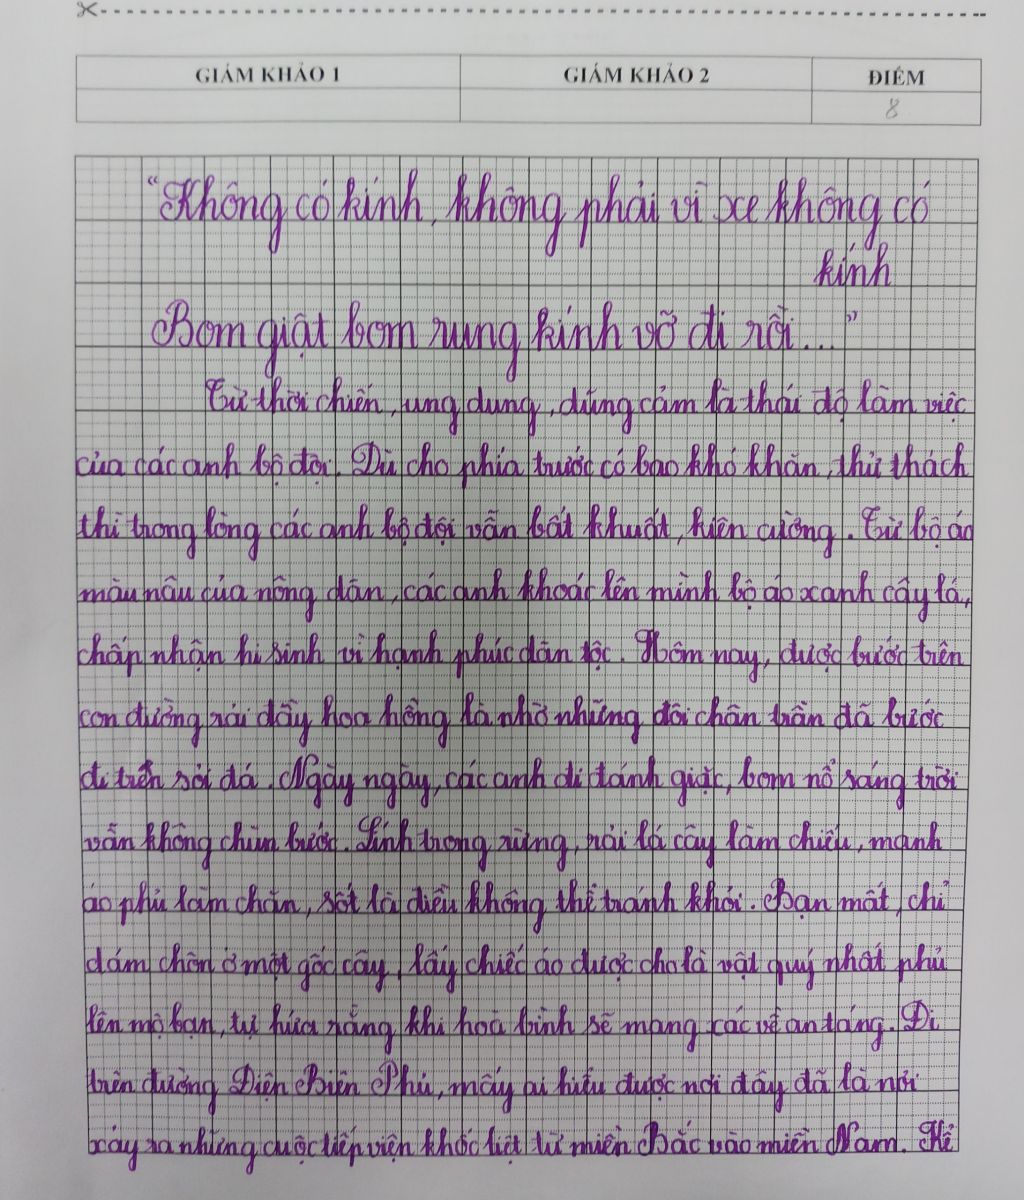 GIÁM KHẢO 1 GIÁM KHẢO 2 ĐIỂM
8
“Không có kính, không phải vì xe không có
kính
Bom giật bom rung kính vỡ đi rồi...”
Từ thời chiến, ung dung, dũng cảm là thái độ làm việc
của các anh bộ đội. Dù cho phía trước có bao khó khăn, thử thách
thì trong lòng các anh bộ đội vẫn bất khuất, kiên cường. Từ bộ áo
màu nâu của nông dân, các anh khoác lên mình bộ áo xanh cây lá,
chấp nhận hi sinh vì hạnh phúc dân tộc. Hôm nay, được bước trên
con đường rải đầy hoa hồng là nhờ những đôi chân trần đã bước
đi trên sỏi đá. Ngày ngày, các anh đi đánh giặc, bom nổ sáng trời
vẫn không chùn bước. Lính trong rừng, rải lá cây làm chiếu, manh
áo phủ làm chăn, sốt là điều không thể tránh khỏi. Bạn mất, chỉ
dám chôn ở một gốc cây, lấy chiếc áo được cho là vật quý nhất phủ
lên mộ bạn, tự hứa rằng khi hoà bình sẽ mang các về an táng. Đi
trên đường Điện Biên Phủ, mấy ai hiểu được nơi đây đã là nơi
xảy ra những cuộc tiếp viện khốc liệt từ miền Bắc vào miền Nam. Kẻ